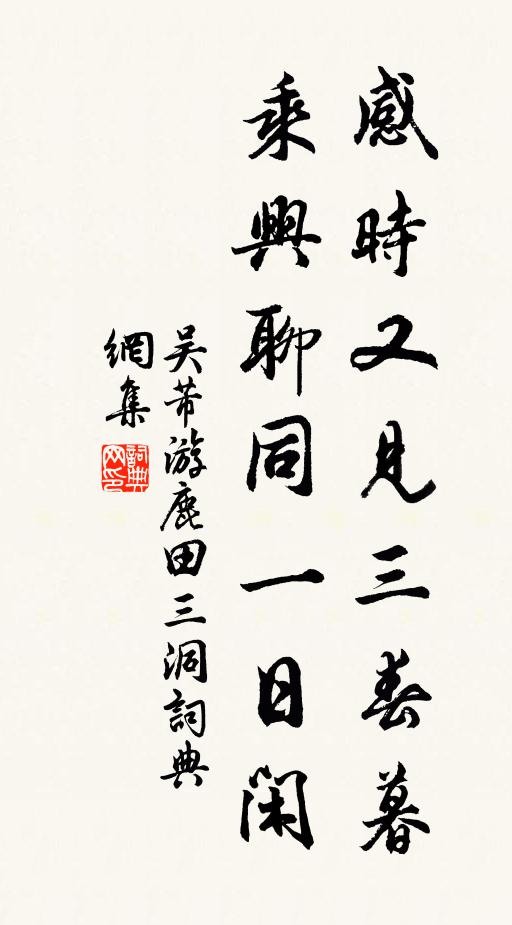 感時又見三春暮
乘興聊同一日閑
吴芾游鹿田三洞詞典
網集
詞典
网印